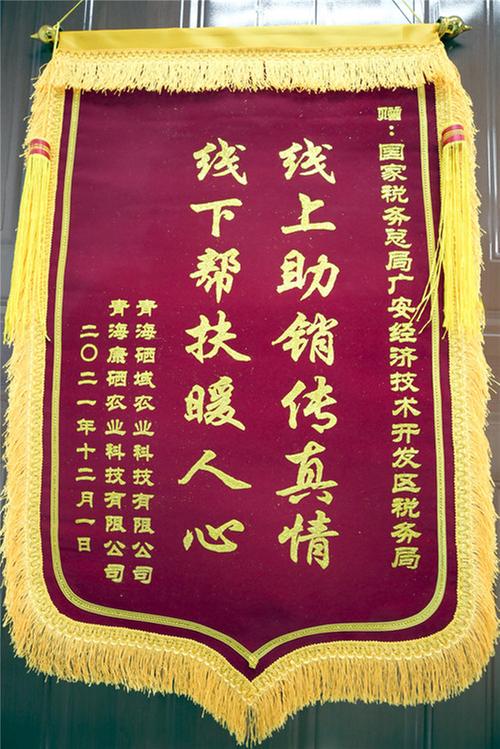 赠：国家税务总局广安经济技术开发区税务局
线上助销传真情
线下帮扶暖人心
青海硒域农业科技有限公司
青海康硒农业科技有限公司
二〇二一年十二月一日